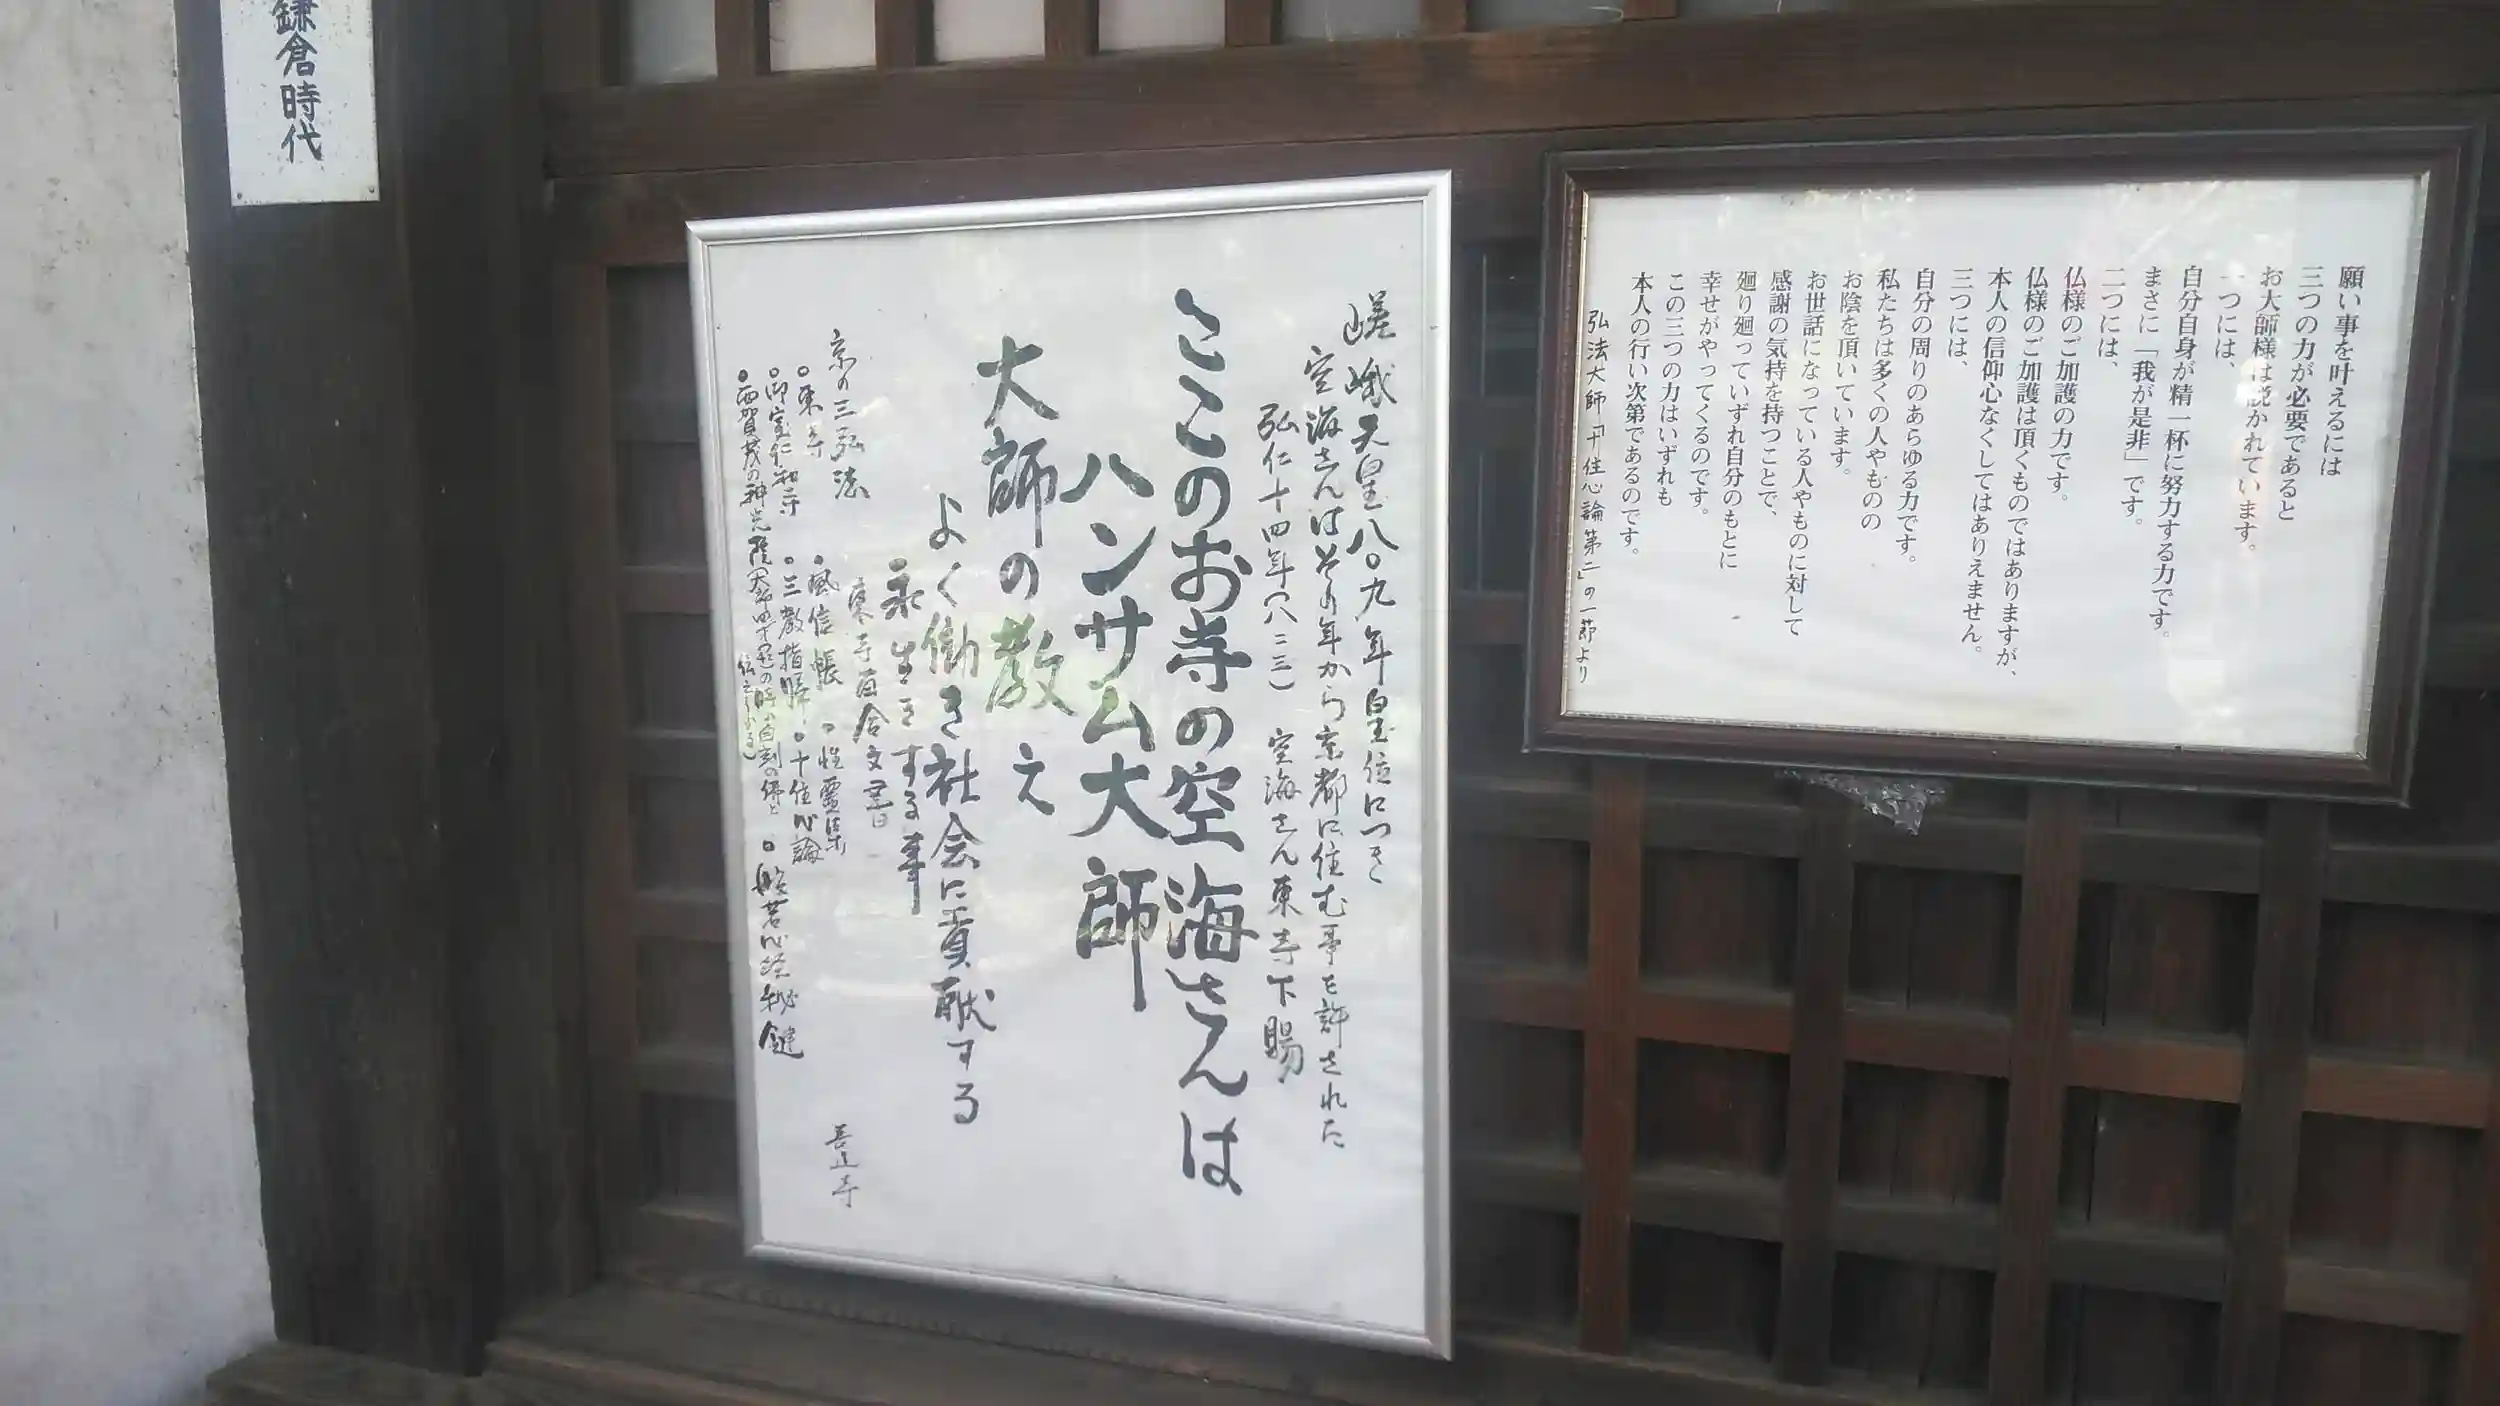 鎌倉時代
願い事を叶えるには
三つの力が必要であると
お大師様は説かれています。
一つには、
自分自身が精一杯に努力する力です。
まさに「我が是非」です。
二つには、
仏様のご加護の力です。
仏様のご加護は頂くものではありますが、
本人の信仰心なくしてはありえません。
三つには、
自分の周りのあらゆる力です。
私たちは多くの人やものの
お陰を頂いています。
お世話になっている人やものに対して
感謝の気持を持つことで、
廻り廻っていずれ自分のもとに
幸せがやってくるのです。
この三つの力はいずれも
本人の行い次第であるのです。
弘法大師「十住心論第二」の一節より
嵯峨天皇八〇九年皇位につき
空海さんはその年から京都に住む事を許された
弘仁十四年(八二三) 空海さん東寺下賜
ここのお寺の空海さんは
ハンサム大師
大師の教え
よく働き社会に貢献する
永生きする事
東寺百合文書
京の三弘法
○東寺
○御室仁和寺
○西賀茂の神光院
○風信帳 ○性霊集
○三教指帰 ○十住心論
○般若心経秘鍵